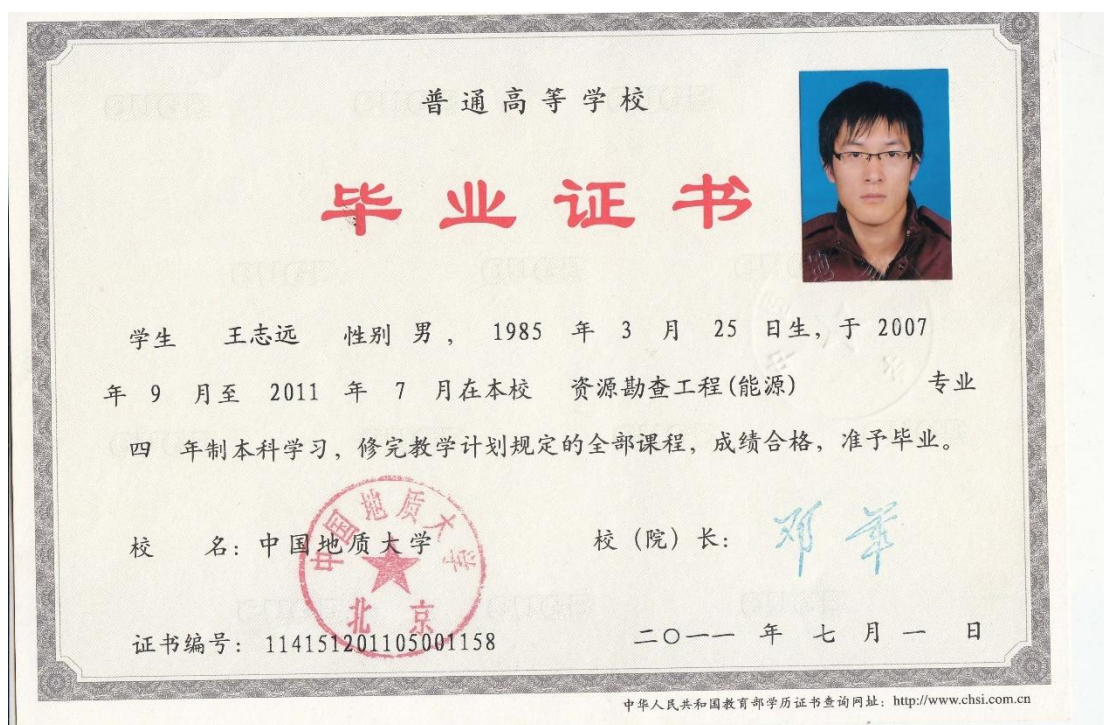 普通高等学校
毕业证书
学生 王志远 性别 男 ， 1985 年 3 月 25 日生，于 2007
年 9 月至 2011 年 7 月在本校 资源勘查工程(能源) 专业
四 年制本科学习，修完教学计划规定的全部课程，成绩合格，准予毕业。
校 名：中国地质大学
校（院）长：
中国地质大学
北京
证书编号： 114151201105001158
二〇一一 年 七 月 一 日
中华人民共和国教育部学历证书查询网址：http://www.chsi.com.cn